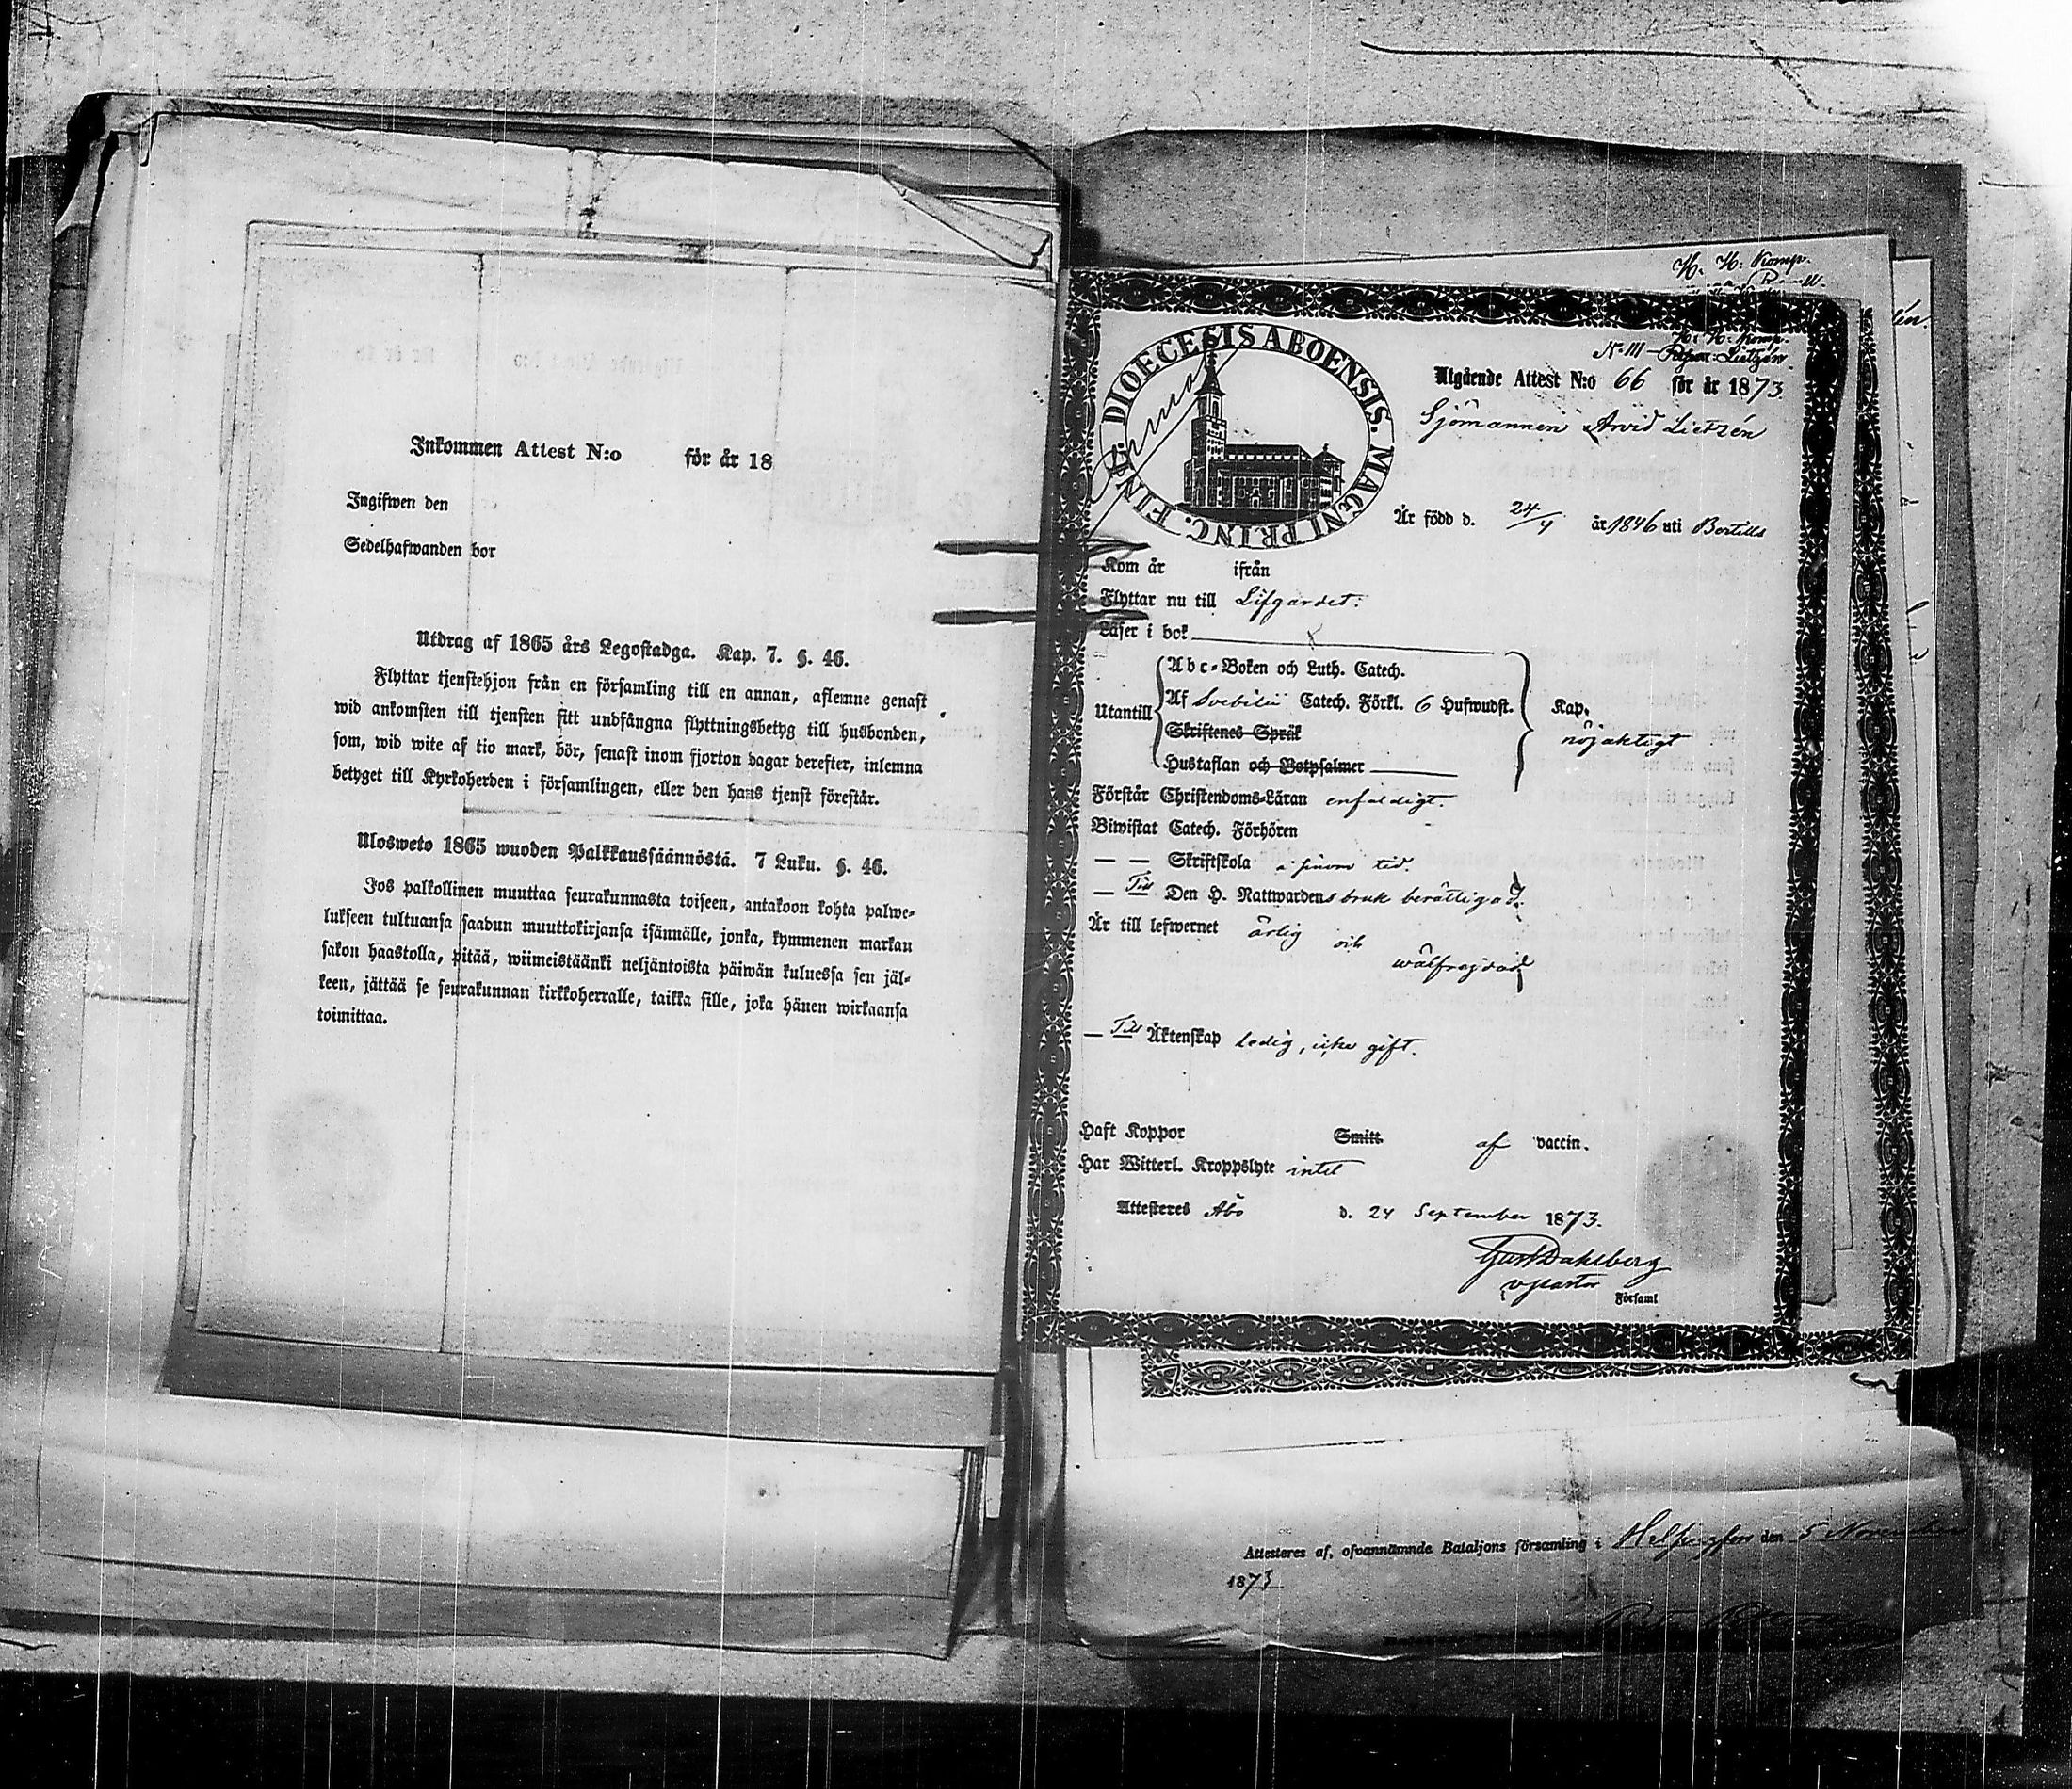 Inkommen Attest N:o för år 18
Ingifwen den
Sedelhafwanden bor
Utdrag af 1865 års Legostadga. Kap. 7. §. 46.
Flyttar tjenstehjon från en församling till en annan, aflemne genast
wid ankomsten till tjensten sitt undfångna flyttningsbetyg till husbonden,
som, wid wite af tio mark, bör, senast inom fjorton dagar derefter, inlemna
betyget till Kyrkoherden i församlingen, eller den hans tjenst förestår.
Ulosweto 1865 wuoden Palkkaussäännöstä. 7 Luku. §. 46.
Jos palkollinen muuttaa seurakunnasta toiseen, antakoon kohta palwe-
lukseen tultuansa saadun muuttokirjansa isännälle, jonka, kymmenen markan
sakon haastolla, pitää, wiimeistäänki neljäntoista päiwän kuluessa sen jäl-
keen, jättää se seurakunnan kirkkoherralle, taikka sille, joka hänen wirkaansa
toimittaa.
H. H. Komp.
H. H. Komp.
N:o 111 Lietzén.
DIOECESIS ABOENSIS. MAGNI PRINC. FINL.
Utgående Attest N:o 66 för år 1873
Sjömannen Arvid Lietzén
Är född d. 24/4 år 1846 uti Bertills
Kom år ifrån
Flyttar nu till Lifgardet.
Läser i bok x
Abc-Boken och Luth. Catech.
Utantill Af Svebilii Catech. Förkl. 6 Hufwudst. Kap.
nöjaktigt
Skriftenes Språk
Hustaflan och Botpsalmer
Förstår Christendoms-Läran enfaldigt.
Biwistat Catech. Förhören
— — Skriftskola i sinom tid.
— Till Den H. Nattwardens bruk berättigad.
Är till lefwernet ärlig och
wälfrejdad
— Till Äktenskap ledig, icke gift.
Haft Koppor Smitt. af vaccin.
Har Witterl. Kroppslyte intet
Attesteres Åbo d. 24 September 1873.
Gust Dahlberg
v pastor
Församl
Attesteres af, ofvannämnde Bataljons församling i Helsingfors den 5 November
1873